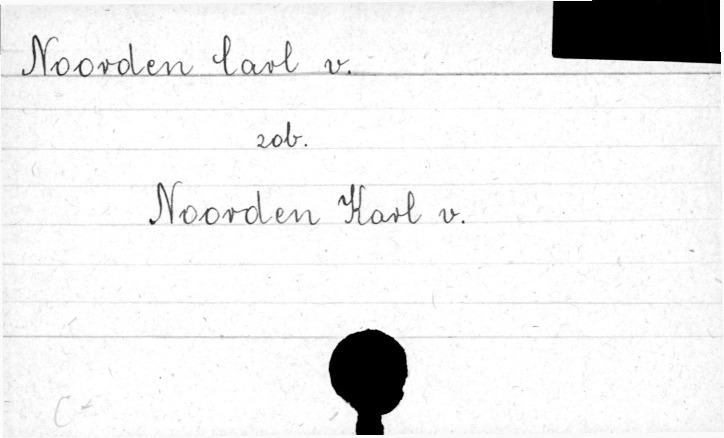 Noorden Carl v.
zob.
Noorden Karl v.
C-